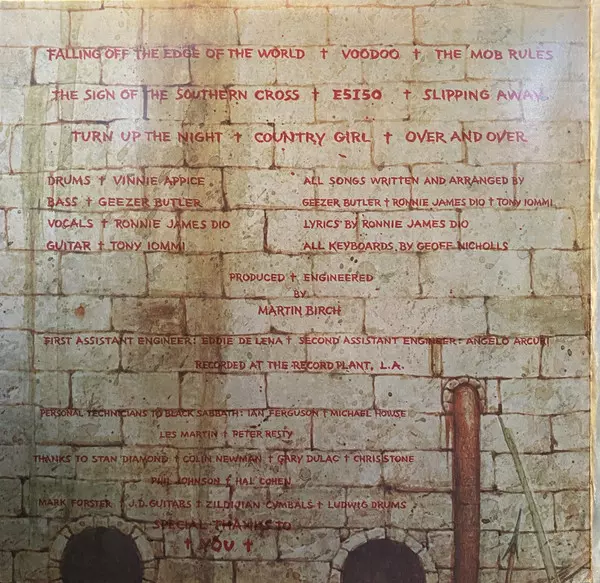 FALLING OFF THE EDGE OF THE WORLD † VOODOO † THE MOB RULES
THE SIGN OF THE SOUTHERN CROSS † E5150 † SLIPPING AWAY
TURN UP THE NIGHT † COUNTRY GIRL † OVER AND OVER
DRUMS † VINNIE APPICE
BASS † GEEZER BUTLER
VOCALS † RONNIE JAMES DIO
GUITAR † TONY IOMMI
ALL SONGS WRITTEN AND ARRANGED BY
GEEZER BUTLER † RONNIE JAMES DIO † TONY IOMMI
LYRICS BY RONNIE JAMES DIO
ALL KEYBOARDS BY GEOFF NICHOLLS
PRODUCED † ENGINEERED
BY
MARTIN BIRCH
FIRST ASSISTANT ENGINEER: EDDIE DE LENA † SECOND ASSISTANT ENGINEER: ANGELO ARCURI
RECORDED AT THE RECORD PLANT, L.A.
PERSONAL TECHNICIANS TO BLACK SABBATH: IAN FERGUSON † MICHAEL HOWSE
LES MARTIN † PETER RESTY
THANKS TO STAN DIAMOND † COLIN NEWMAN † GARY DULAC † CHRIS STONE
PHIL JOHNSON † HAL COHEN
MARK FORSTER † J.D. GUITARS † ZILDJIAN CYMBALS † LUDWIG DRUMS
SPECIAL THANKS TO
† YOU †